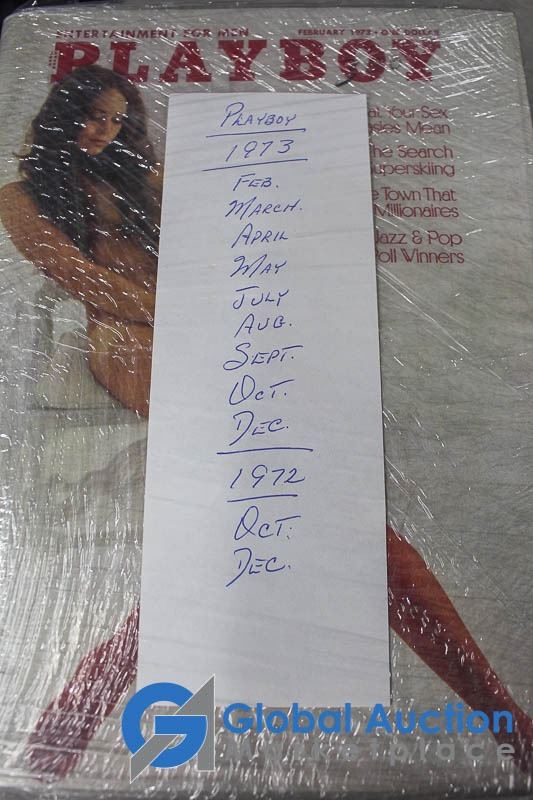 ENTERTAINMENT FOR MEN
FEBRUARY 1973 • ONE DOLLAR
PLAYBOY
Your Sex
Mean
The Search
Superskiing
Town That
Millionaires
Jazz & Pop
Poll Winners
PLAYBOY
1973
FEB.
MARCH.
APRIL
MAY
JULY
AUG.
SEPT.
OCT.
DEC.
1972
OCT.
DEC.
Global Auction
Marketplace